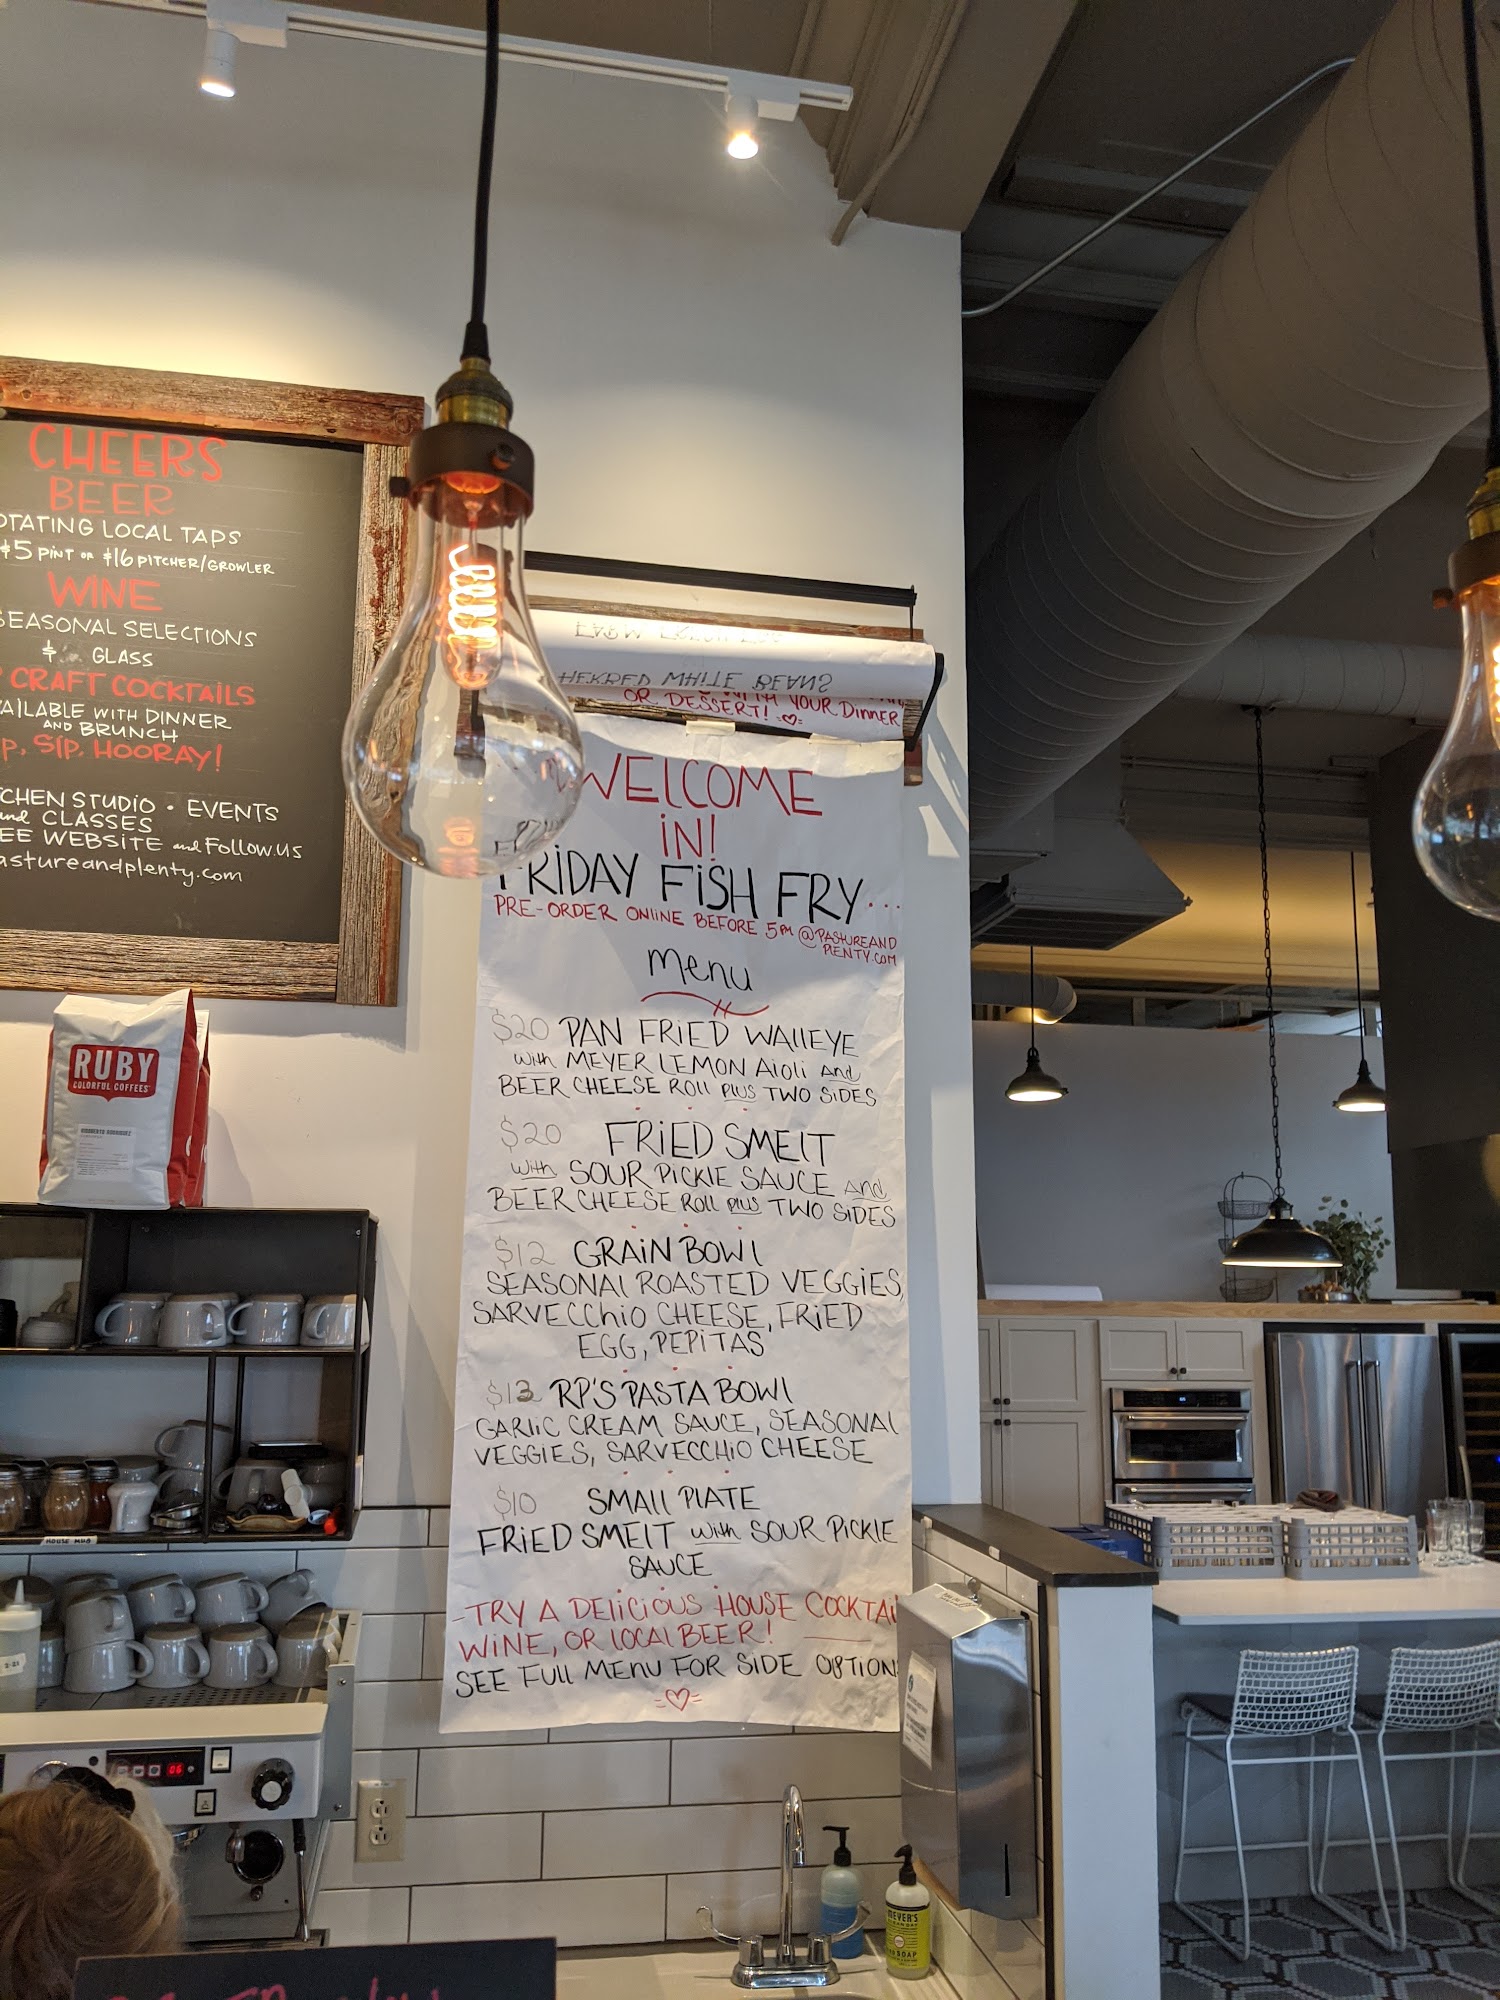 CHEERS
BEER
LOCAL TAPS
$5 PINT OR $16 PITCHER/GROWLER
WINE
SEASONAL SELECTIONS
GLASS
CRAFT COCKTAILS
WITH DINNER
AND BRUNCH
SIP, HOORAY!
STUDIO • EVENTS
and CLASSES
WEBSITE and FOLLOW US
RUBY
COLORFUL COFFEES
WHITE BEANS
WITH YOUR DINNER
OR DESSERT!
WELCOME
IN!
FRIDAY FISH FRY...
PRE-ORDER ONLINE BEFORE 5PM @PASTUREAND
PLENTY.COM
menu
$20 PAN FRIED WALLEYE
with MEYER LEMON AIOLI and
BEER CHEESE ROLL PLUS TWO SIDES
$20 FRIED SMELT
with SOUR PICKLE SAUCE and
BEER CHEESE ROLL PLUS TWO SIDES
$12 GRAIN BOWL
SEASONAL ROASTED VEGGIES,
SARVECCHIO CHEESE, FRIED
EGG, PEPITAS
$13 RP'S PASTA BOWL
GARLIC CREAM SAUCE, SEASONAL
VEGGIES, SARVECCHIO CHEESE
$10 SMALL PLATE
FRIED SMELT with SOUR PICKLE
SAUCE
-TRY A DELICIOUS HOUSE COCKTAI
WINE, OR LOCAL BEER!
SEE FULL MENU FOR SIDE OPTION
HOUSE MUG
06
MEYER'S
SOAP